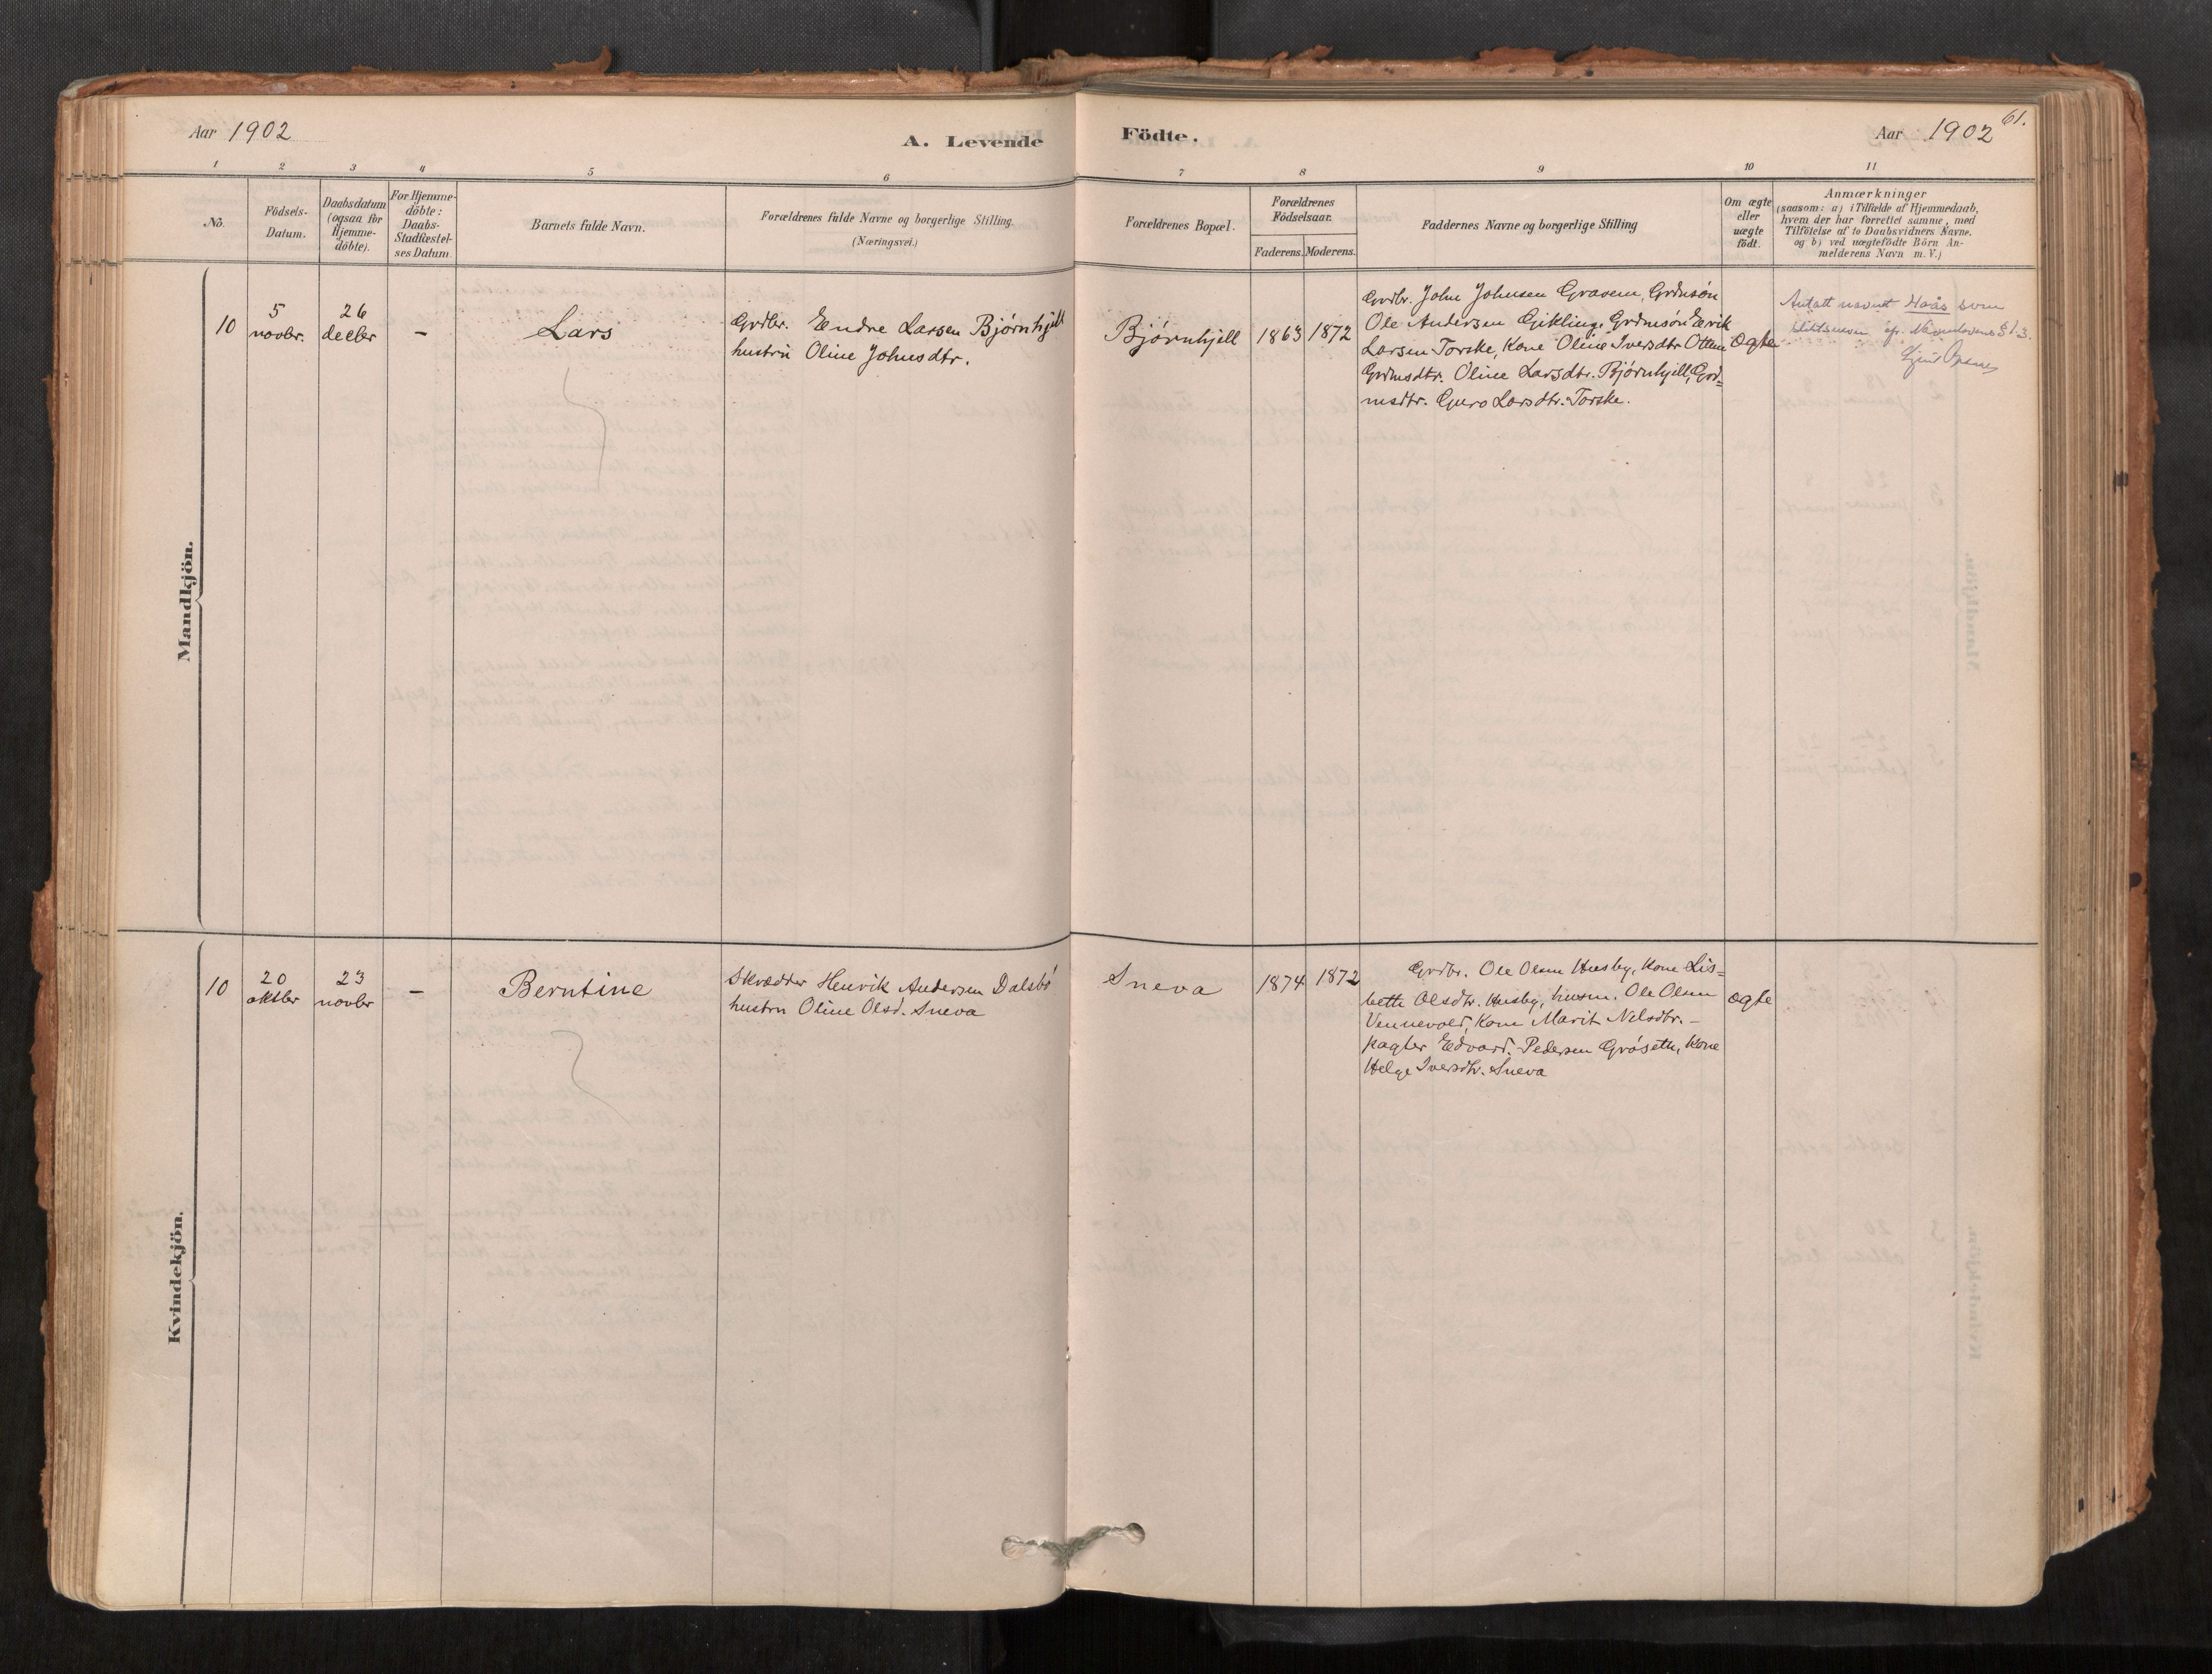 Aar 1902
A. Levende
Födte.
Aar 1902
61.
1 2 3 4 5 6 7 8 9 10 11
No.
Födsels-
Datum.
Daabsdatum
(ogsaa for
Hjemme-
döbte).
For Hjemme-
döbte:
Daabs-
Stadfæstel-
ses Datum.
Barnets fulde Navn.
Forældrenes fulde Navne og borgerlige Stilling.
(Næringsvei.)
Forældrenes Bopæl.
Forældrenes
Födselsaar.
Faderens. Moderens.
Faddernes Navne og borgerlige Stilling
Om ægte
eller
uægte
födt.
Anmærkninger
(saasom: a) i Tilfælde af Hjemmedaab,
hvem der har forrettet samme, med
Tilföielse af to Daabsvidners Navne,
og b) ved uægtefödte Börn An-
melderens Navn m. V.)
Mandkjön.
10
5
novbr.
26
decbr
–
Lars
Grdbr. Endre Larsen Bjørnhjell
hustru Oline Johnsdtr.
Bjørnhjell
1863
1872
Grdbr. John Johnsen Gravem, Grdmsøn
Ole Andersen Gikling, Grdmsøn Eirik
Larsen Torske, Kone Oline Iversdtr Ottem
Grdmsdtr. Oline Larsdtr. Bjørnhjell, Grd=
msdtr. Guro Larsdtr. Torske.
ægte
Antatt navnet Haås som
slektsnavn cfr. Navnelovens § 1.3.
Kvindekjön.
10
20
oktbr
23
novbr
–
Berntine
Skrædder Henrik Andersen Dalsbø
hustru Oline Olsd. Sneva
Sneva
1874
1872
Grdbr. Ole Olsen Husby, Kone Lis=
beth Olsdtr. Husby, husm. Ole Olsen
Vennevold, Kone Marit Nilsdtr. –
pagter Edvard Pedersen Grøseth, Kone
Helge Iversdtr. Sneva
ægte